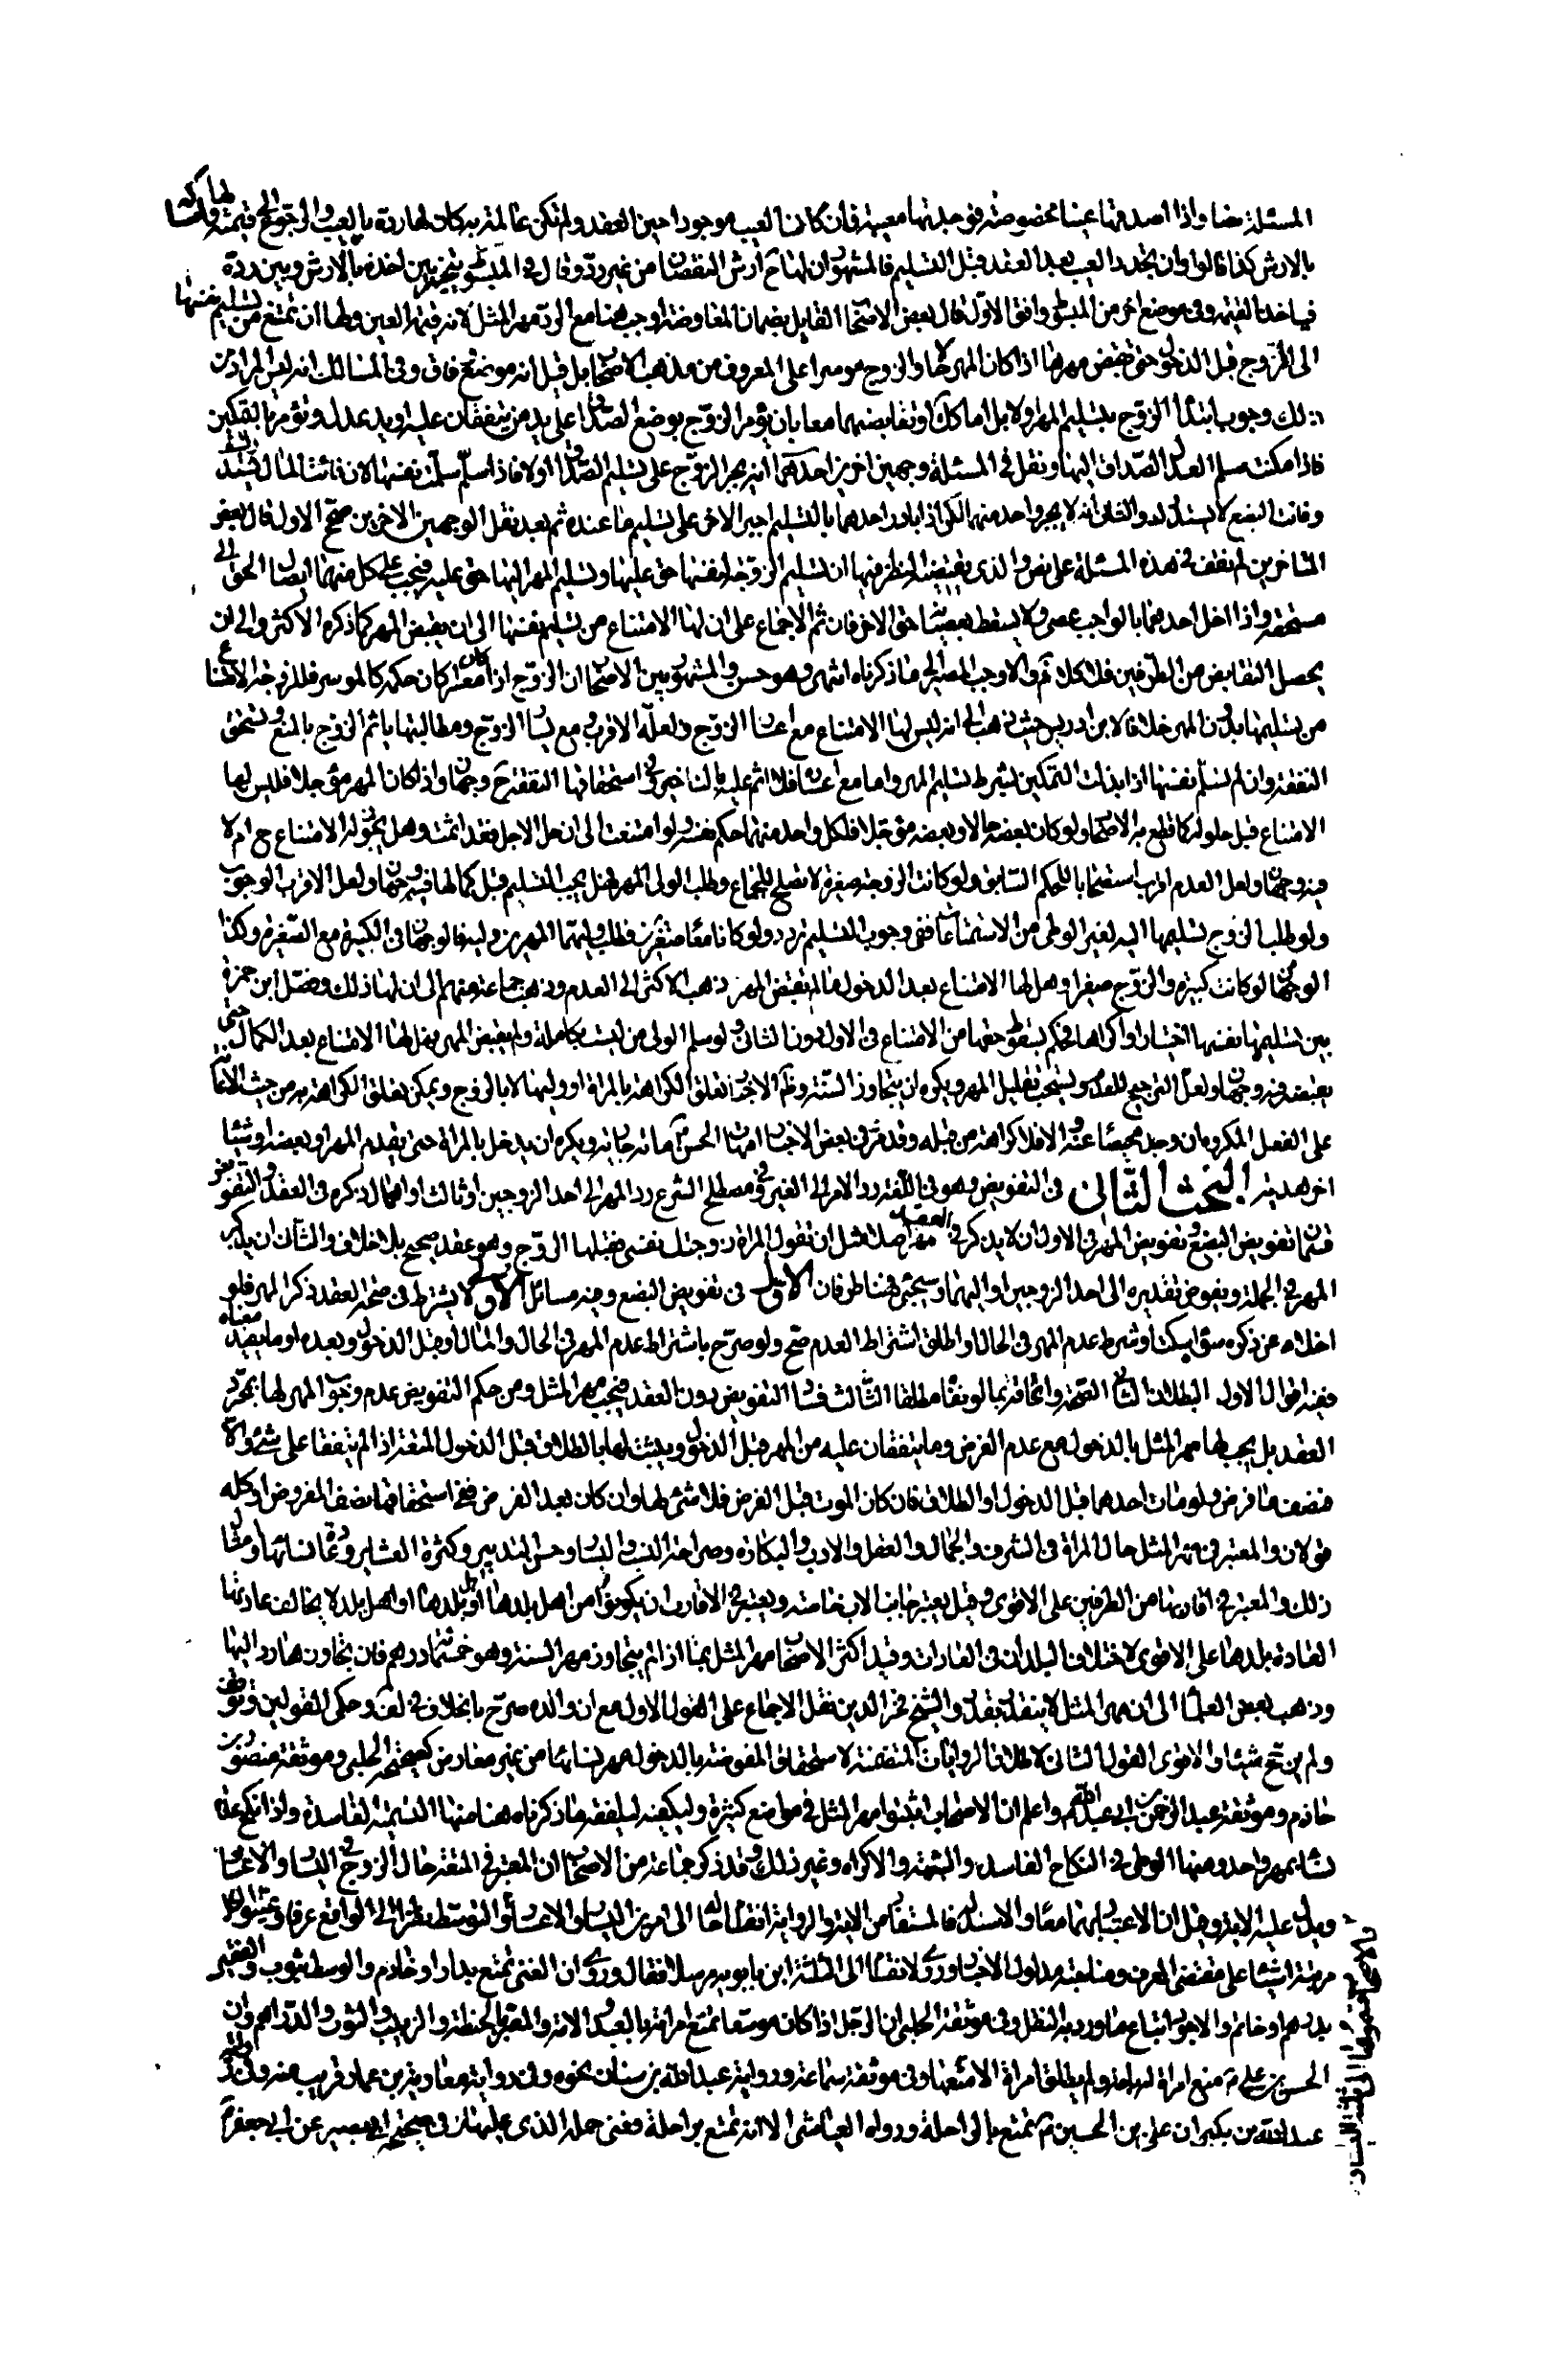 المسئلة هنا واذا اصدقها عينا مخصوصة فوجدتها معيبة فان كان العيب موجودا حين العقد ولم تكن عالمة به كان لها رده بالعيب والرجوع الى قيمته ولها امساكه
بالارش كذا قالوا وان تجدد العيب بعد العقد وقبل التسليم فالمشهور ان لها ح ارش النقصان من غير رد وقال في المبسوط تتخير بين اخذه بالارش وبين رده
فياخذ القيمة وفي موضع اخر من المبسوط وافق الاول قال بعض الاصحاب القايل بضمان المعاوضة اوجب هنا مع الرد مهر المثل لا قيمة العين ولها ان تمتنع من تسليم نفسها
الى الزوج قبل الدخول حتى تقبض مهرها اذا كان المهر حالا والزوج موسرا على المعروف من مذهب الاصحاب بل قيل انه موضع وفاق وفي المسالك انه ليس المراد من
ذلك وجوب ابتداء الزوج بتسليم المهر اولا بل اما كك او تقابضهما معا بان يؤمر الزوج بوضع الصداق على يد من يتفقان عليه او يد عدل وتؤمر بالتمكين
فاذا مكنت سلم العدل الصداق اليها ونقل في المسئلة وجهين اخرين احدهما انه يجبر الزوج على تسليم الصداق اولا فاذا سلم سلمت نفسها لان فائت المال يستدرك
وفائت البضع لا يستدرك والثاني انه لا يجبر واحد منهما لكن اذا بادر احدهما بالتسليم اجبر الاخر على تسليم ما عنده ثم بعد نقل الوجهين الاخرين صحح الاول قال بعض
المتاخرين لم نقف في هذه المسئلة على نص والذي يقتضيه النظر فيها ان تسليم الزوجة نفسها حق عليها وتسليم المهر اليها حق عليه فيجب على كل منهما ايصال الحق الى
مستحقه واذا اخل احدهما بالواجب عصى ولا يسقط بعصيانه حق الاخر فان تم الاجماع على ان لها الامتناع من تسليم نفسها الى ان يقبض المهر كما ذكره الاكثر والى ان
يحصل التقابض من الطرفين فلا كلام والا وجب المصير الى ما ذكرناه انتهى وهو حسن والمشهور بين الاصحاب ان الزوج اذا كان معسرا كان حكمه كالموسر فللزوجة الامتناع
من تسليمها بدون المهر خلافا لابن ادريس حيث ذهب الى انه ليس لها الامتناع مع اعسار الزوج ولعله الاقرب ومع يسار الزوج ومطالبتها ياثم الزوج بالمنع وتستحق
النفقة وان لم تسلم نفسها اذا بذلت التمكين بشرط تسليم المهر واما مع اعساره فلا اثم عليه بالتاخير وفي استحقاقها النفقة ح وجهان واذا كان المهر مؤجلا فليس لها
الامتناع قبل حلوله كما قطع به الاصحاب ولو كان بعضه حالا وبعضه مؤجلا فلكل واحد منهما حكم نفسه ولو امتنعت الى ان حل الاجل فقد اثمت وهل يجوز لها الامتناع ح ام لا
فيه وجهان ولعل العدم اقرب استصحابا للحكم السابق ولو كانت الزوجة صغيرة لا تصلح للجماع وطلب الولي المهر فهل يجب التسليم قبل كمالها فيه وجهان ولعل الاقرب الوجوب
ولو طلب الزوج تسليمها اليه لغير الوطي من الاستمتاعات ففي وجوب التسليم تردد ولو كانا معا صغيرين فطلب وليهما المهر من وليه فالوجهان في الكبيرة مع الصغيرة وكذا
الوجهان لو كانت كبيرة والزوج صغيرا وهل لها الامتناع بعد الدخول ما لم تقبض المهر ذهب الاكثر الى العدم وذهب جماعة منهم الى ان لها ذلك وفصل ابن حمزة
بين تسليمها نفسها اختيارا واكراها فحكم بسقوط حقها من الامتناع في الاول دون الثاني ولو سلم الولي من ليست بكاملة ولم يقبض المهر فهل لها الامتناع بعد الكمال حتى
يقبضه فيه وجهان ولعل الترجيح للعدم ويستحب تقليل المهر ويكره ان يتجاوز السنة وظاهر الاخبار تعلق الكراهة بالمراة او وليها لا بالزوج ويمكن تعلق الكراهة به من حيث الاعانة
على الفعل المكروه ان وجد محيصا عنه والا فلا كراهة من قبله وقد مر في بعض الاخبار امهار الحسن ع مائة جارية ويكره ان يدخل بالمراة حتى يقدم المهر او بعضه او شيئا
اخر هدية البحث الثاني في التفويض وهو في اللغة رد الامر الى الغير وفي مصطلح الشرع رد المهر الى احد الزوجين او ثالث او اهمال ذكره في العقد والتفويض
قسمان تفويض البضع وتفويض المهر في الاول ان لا يذكر في العقد مهر اصلا مثل ان تقول المراة زوجتك نفسي فيقبلها الزوج وهو عقد صحيح بلا خلاف والثاني ان يذكر
المهر في الجملة ويفوض تقديره الى احد الزوجين او اليهما وسيجئ فهنا طرفان الاول في تفويض البضع وفيه مسائل الاولى لا يشترط في صحة العقد ذكر المهر فلو
اخلاه عن ذكره سواء سكت او شرط عدم المهر في الحال او اطلق اشتراط العدم صح ولو صرح باشتراط عدم المهر في الحال والمال او قبل الدخول وبعده او ما يفيد معناه
ففيه اقوال الاول البطلان الثاني الصحة والحاقه بما لو نفاه مطلقا الثالث فساد التفويض دون العقد فيجب مهر المثل ومن حكم التفويض عدم وجوب المهر لها بمجرد
العقد بل يجب لها مهر المثل بالدخول مع عدم الفرض وما يتفقان عليه من المهر قبل الدخول ويثبت لها بالطلاق قبل الدخول المتعة اذا لم يتفقا على شئ والا
فنصف ما فرض ولو مات احدهما قبل الدخول او الطلاق فان كان الموت قبل الفرض فلا شئ لها وان كان بعد الفرض ففي استحقاقها نصف المفروض او كله
قولان والمعتبر في مهر المثل حال المراة في الشرف والجمال والعقل والادب والبكارة وصراحة النسب واليسار وحسن التدبير وكثرة العشاير وعادة نسائها وامثال
ذلك والمعتبر في اقاربها من الطرفين على الاقوى وقيل يعتبر جانب الاب خاصة ويعتبر في الاقارب ان يكونوا من اهل بلدها او اهل بلد لا يخالف عادتها
العادة بلدها على الاقوى لاختلاف البلدان في العادات وقيد اكثر الاصحاب مهر المثل بما اذا لم يتجاوز مهر السنة وهو خمسمائة درهم فان تجاوزها رد اليها
وذهب بعض العلماء الى ان مهر المثل لا يتقدر بقدر والشيخ فخر الدين نقل الاجماع على القول الاول مع ان والده صرح بالخلاف في لف وحكى القولين وتوقف
ولم يرجح شيئا والاقوى القول الثاني لاطلاق الروايات المتضمنة لاستحقاق المفوضة بالدخول مهر نسائها من غير معارض كصحيحة الحلبي وموثقة منصور بن
حازم وموثقة عبد الرحمن بن ابي عبد الله واعلم ان الاصحاب اثبتوا مهر المثل في مواضع كثيرة وليكيفيته ما ذكرناه هنا منها التسمية الفاسدة واذا نكح عدة
نساء بمهر واحد ومنها الوطي في النكاح الفاسد والشبهة والاكراه وغير ذلك وقد ذكر جماعة من الاصحاب ان المعتبر في المتعة حال الزوج في اليسار والاعسار
ويدل عليه الاية وقيل ان الاعتبار بهما معا والاستدلال فالمستفاد من الاية والرواية انقسام حاله الى امرين اليسار والاعسار او التوسط نظرا الى الواقع عرفا وعينوا لكل
مرتبة اشياء على مقتضى العرف ومناسبة مدلول الاخبار وروي الانقسام الى الثلثة ابن بابويه مرسلا فقال وروي ان الغني يمتع بدار او خادم والوسط بثوب والفقير
بدرهم او خاتم والاجود اتباع ما ورد به النقل وفي موثقة الحلبي ان الرجل اذا كان موسعا يمتع امراته بالعبد والامة والمقتر بالحنطة والزبيب والثوب والدراهم وان
الحسن بن علي ع متع امراة له بامة ولم يطلق امراة الا متعها وفي موثقة سماعة ورواية عبد الله بن سنان نحوه وفي رواية معاوية بن عمار قريب منه وفي رواية
عبد الله بن بكير ان علي بن الحسين ع كان يمتع بالراحلة ورواه العياشي الا انه تمتع براحلة فعنى حملها الذي عليها وفي صحيحة ابي بصير عن ابي جعفر ع